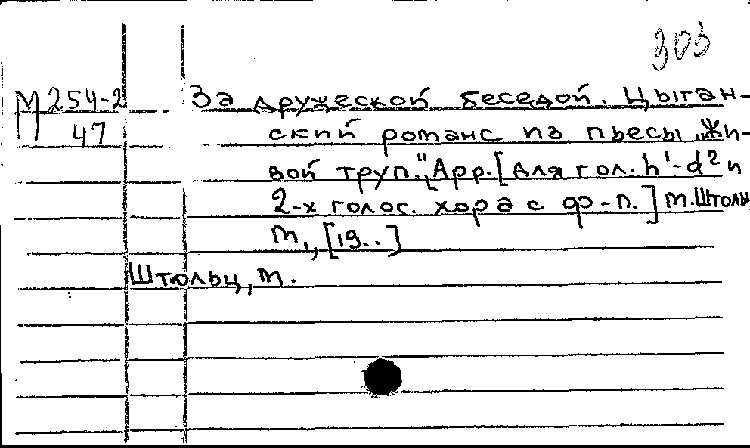 303
М 254-2
47
За дружеской беседой. Цыган-
ский романс из пьесы „Жи-
вой труп." Арр. [для гол. h'-d² и
2-х голос. хора с ф-п.] М. Штольц
М., [19..]
Штольц, М.